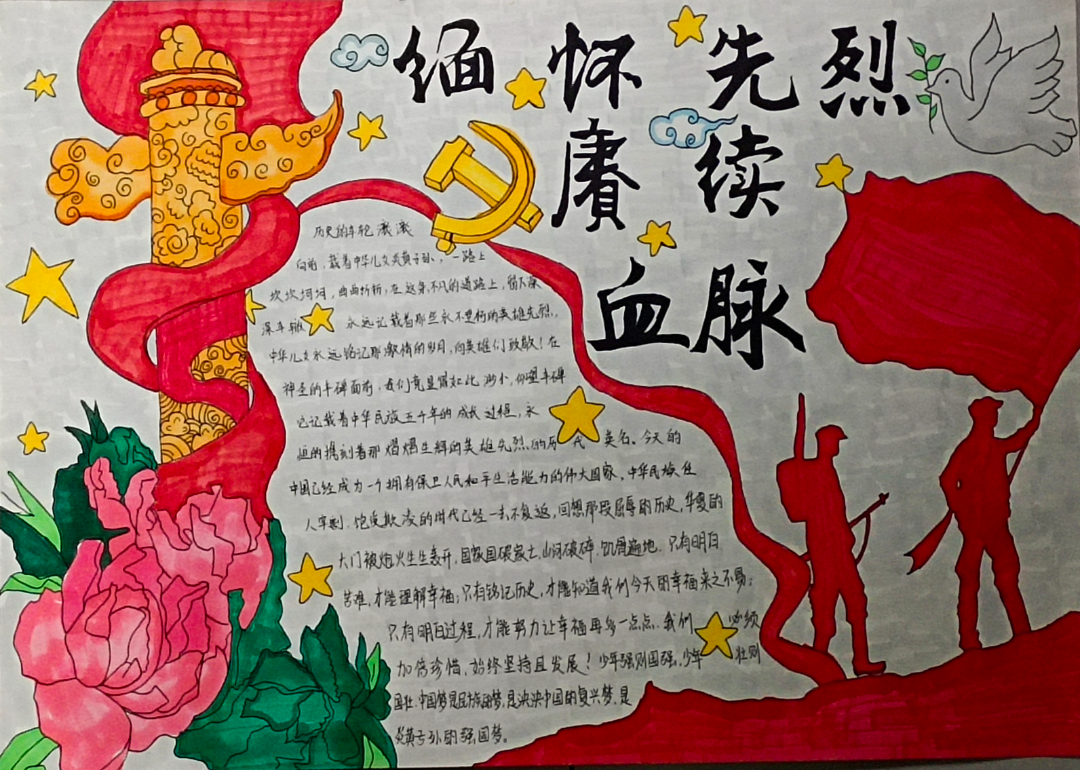 缅怀先烈
赓续
血脉
历史的车轮滚滚
向前，载着中华儿女炎黄子孙，一路上
坎坎坷坷，曲曲折折，在这条不凡的道路上，留下深
深车辙 永远记载着那些永不坚朽的英雄先烈。
中华儿女永远铭记那激情的岁月，向英雄们致敬！在
神圣的丰碑面前，我们竟显得如此渺小，仰望丰碑
它记载着中华民族五千年的成长过程，永
远的镌刻着那熠熠生辉的英雄先烈的历代英名。今天的
中国已经成为一个拥有保卫人民和平生活能力的伟大国家，中华民族任
人宰割，饱受欺凌的时代已经一去不复返，回想那段屈辱的历史，华夏的
大门被炮火生生轰开，国家国破家亡，山河破碎，饥骨遍地，只有明白
苦难，才能理解幸福；只有铭记历史，才能知道我们今天的幸福来之不易；
只有明白过程，才能努力让幸福再多一点点。我们必须
加倍珍惜，始终坚持且发展！少年强则国强，少年壮则
国壮，中国梦是民族的梦，是泱泱中国的复兴梦，是
炎黄子孙的强国梦。